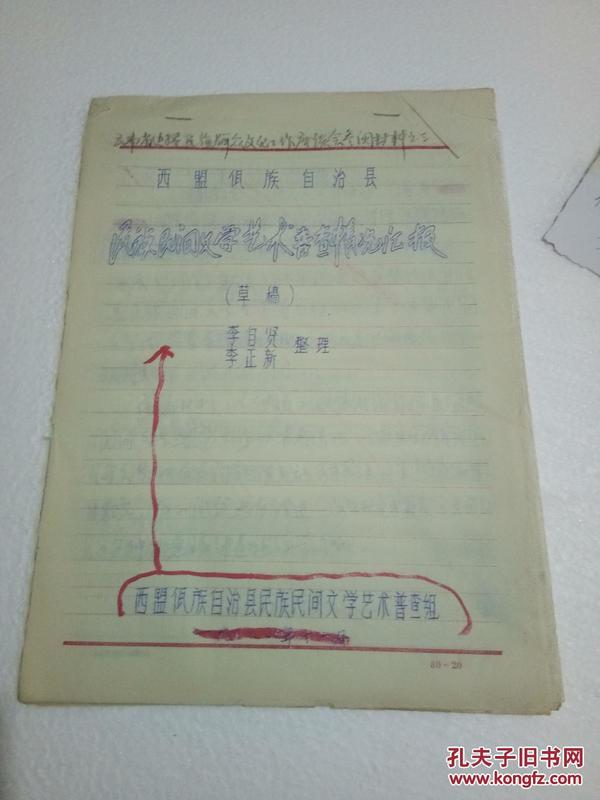 云南省边疆民族群众文化工作座谈会参阅材料之三
西盟佤族自治县
民族民间文学艺术普查情况汇报
(草稿)
李自贤
李正新
整理
西盟佤族自治县民族民间文学艺术普查组
80-20
孔夫子旧书网
www.kongfz.com